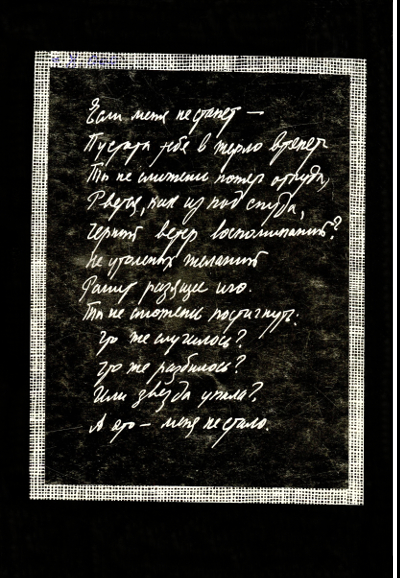 Если меня не станет —
Пустота тебе в
Ты не сможешь
Рвётся, как из под спуда,
Черный ветер воспоминаний?
Не утоленных желаний
разящее иго.
Ты не сможешь постигнуть:
Что же случилось?
Что же разбилось?
Или звезда упала?
А это — меня не стало.